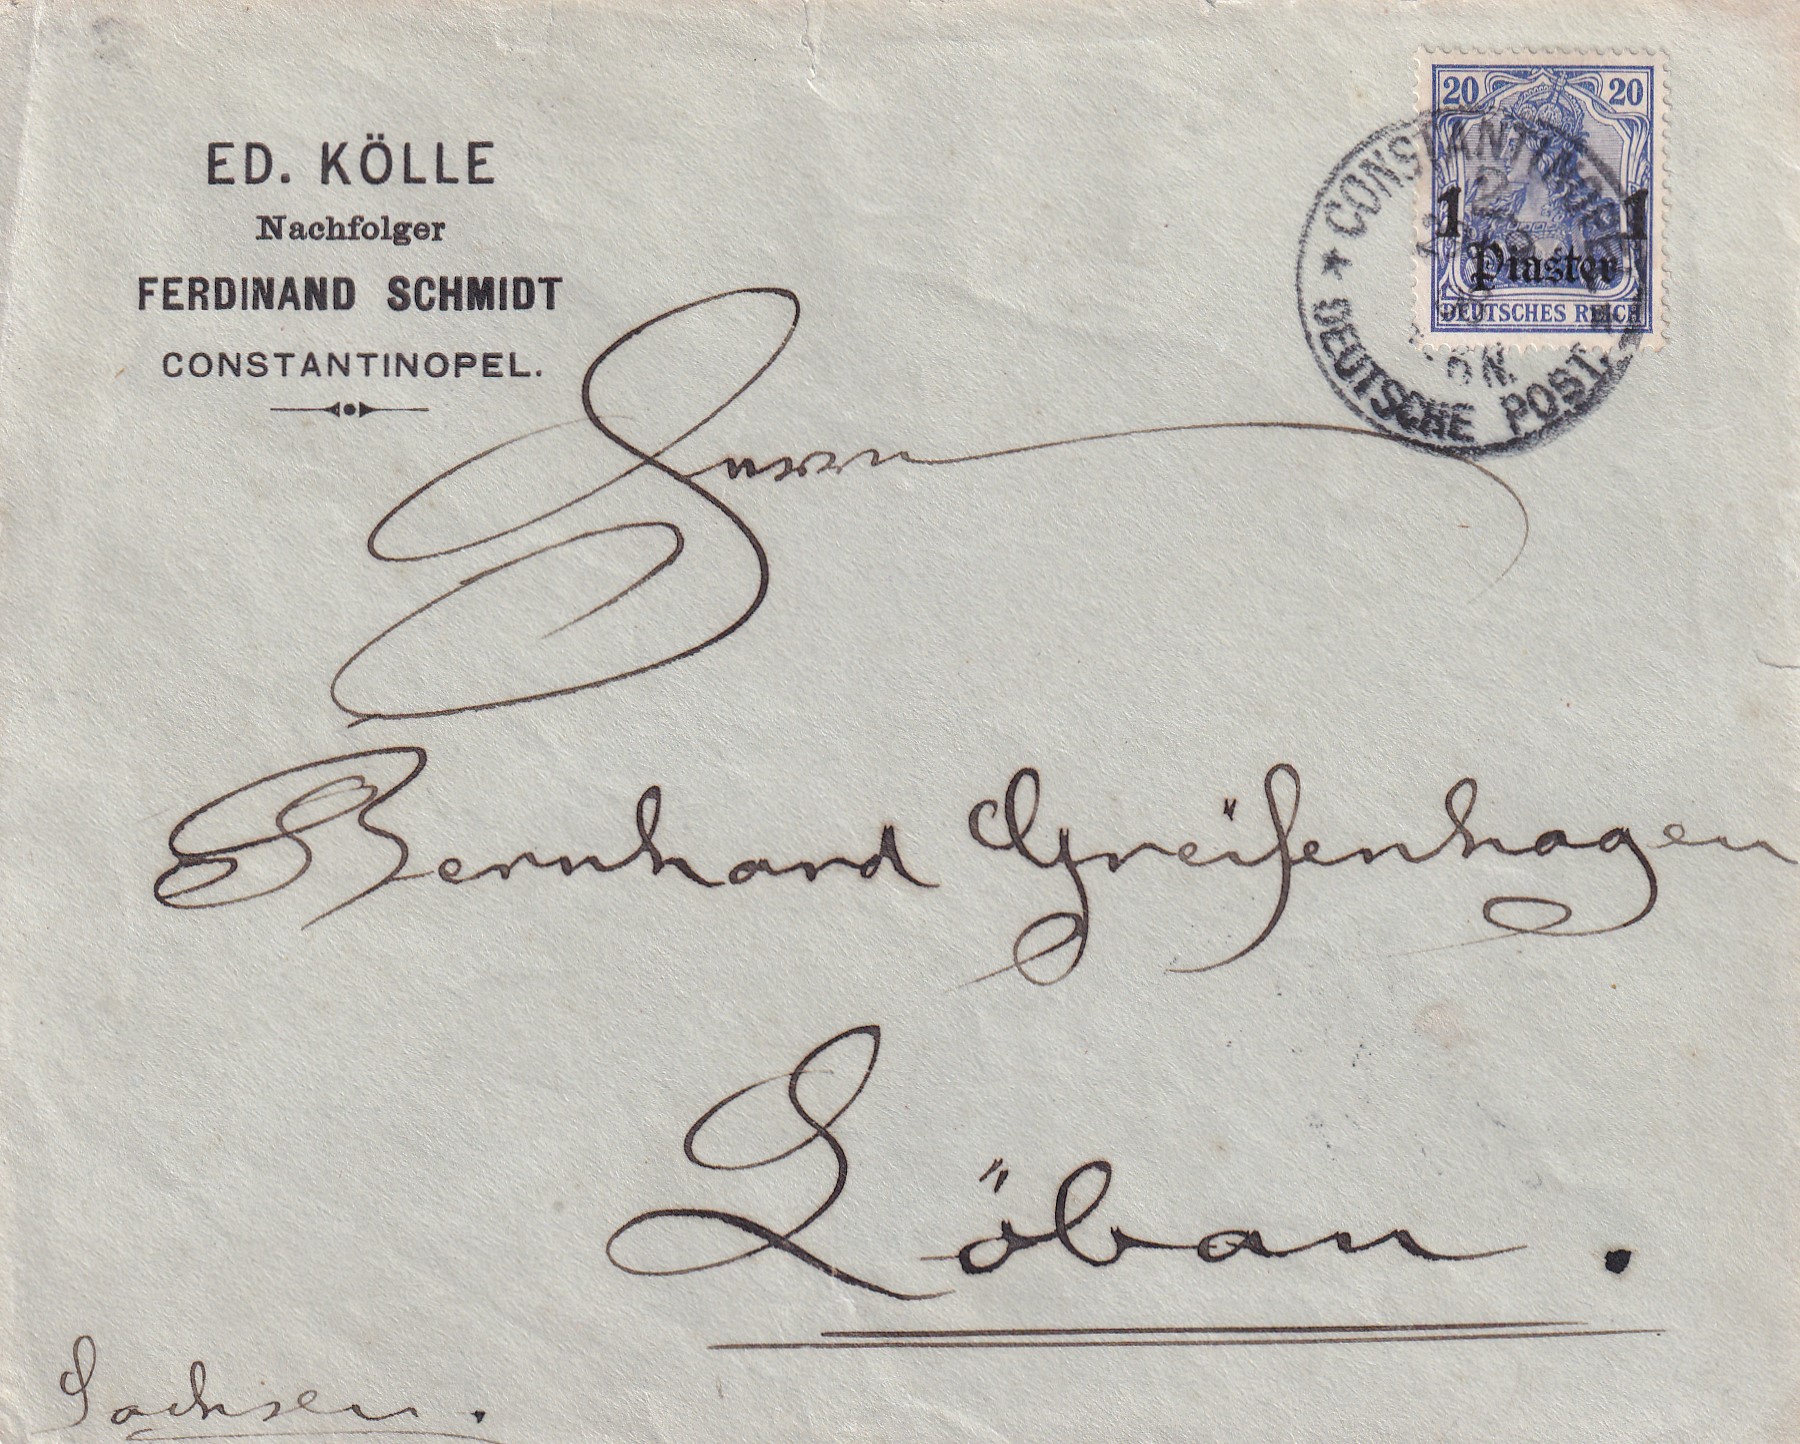 ED. KÖLLE
Nachfolger
FERDINAND SCHMIDT
CONSTANTINOPEL.
20 20
1 1
Piaster
DEUTSCHES REICH
CONSTANTINOPEL
DEUTSCHE POST.
Herrn
Bernhard Greifenhagen
Löbau.
Sachsen.